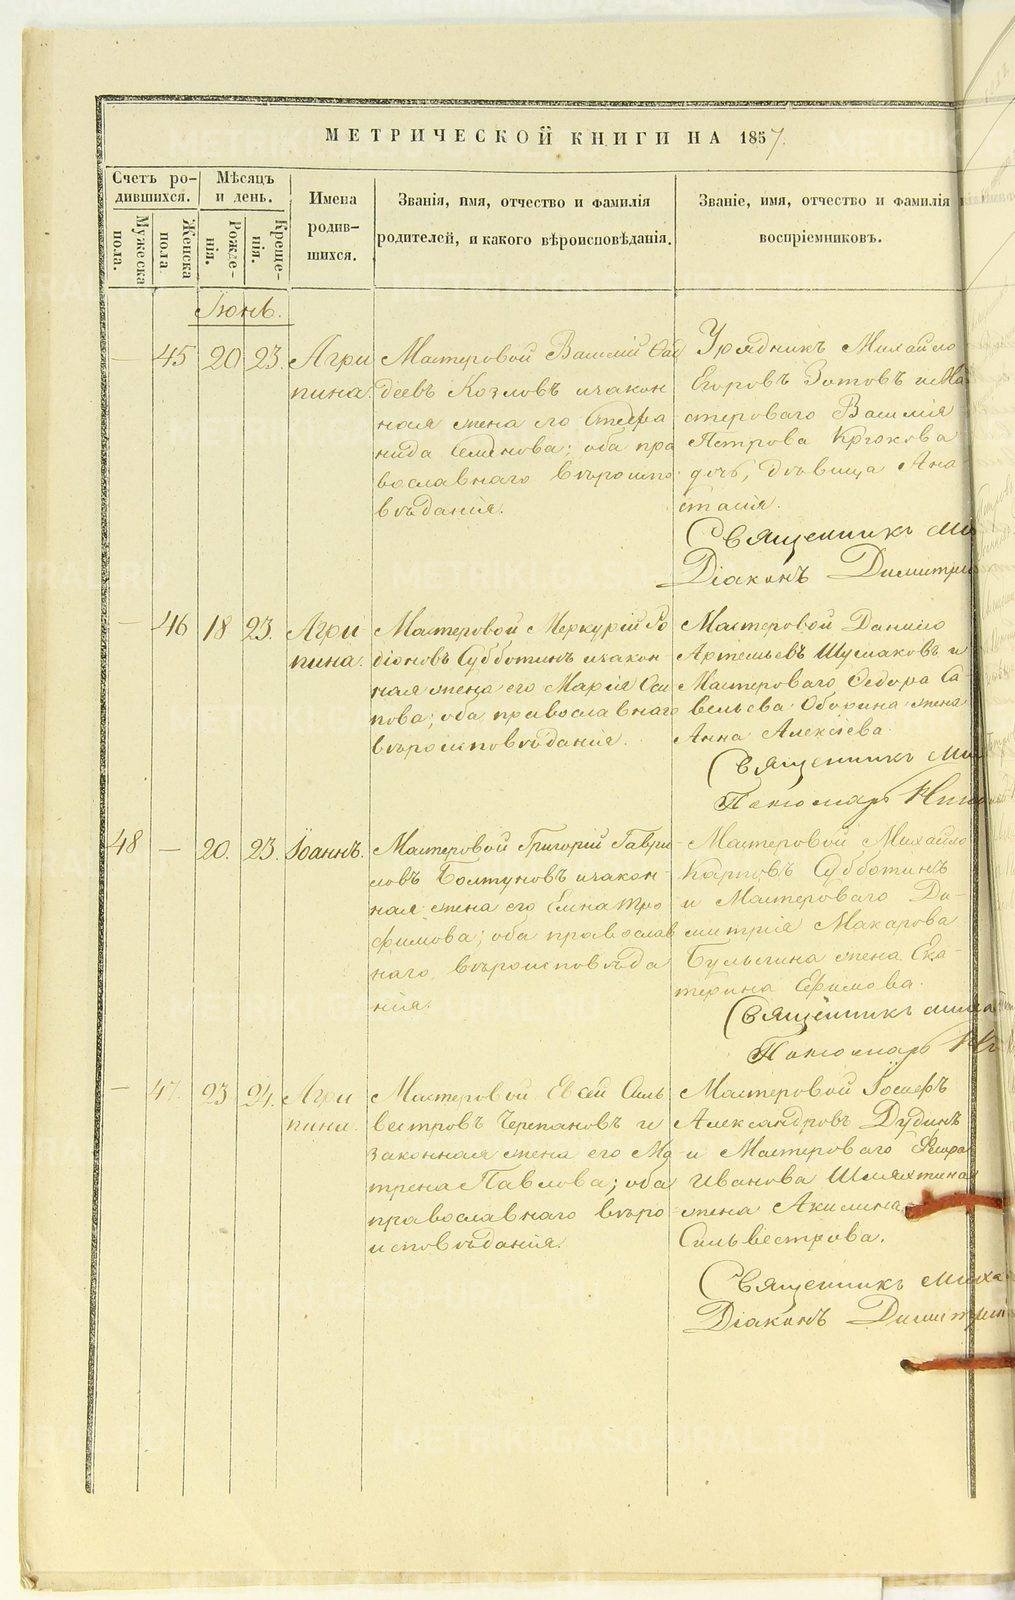 МЕТРИЧЕСКОЙ КНИГИ НА 1857.
Счетъ ро-
дившихся.
Мѣсяцъ
и день.
Имена
родив-
шихся.
Званія, имя, отчество и фамилія
родителей, и какого вѣроисповѣданія.
Званіе, имя, отчество и фамилія
воспріемниковъ.
Мужеска
пола.
Женска
пола
Рожде-
нія.
Креще-
нія.
Іюнь.
— 45 20 23. Агри
пина.
Мастеровой Василий Фад
деевъ Козловъ и закон
ная жена его Стефа
нида Семенова; оба пра
вославнаго вѣроиспо
вѣданія.
Урядникъ Михайло
Егоровъ Зотовъ и Ма
стероваго Василія
Петрова Крюкова
дочь, дѣвица Ана
стасія.
Священникъ Ми
Діаконъ Димитрій
— 46 18 23. Агри
пина.
Мастеровой Меркурій Ро
діоновъ Субботинъ и закон
ная жена его Марія Оси
пова; оба православнаго
вѣроисповѣданія.
Мастеровой Данило
Артемьевъ Шумаковъ и
Мастероваго Федора Са-
вельева Оборина жена
Анна Алексіева.
Священникъ Ми
Пономарь
48 — 20. 23. Іоаннъ.
Мастеровой Григорій Гаври-
ловъ Болтуновъ и закон-
ная жена его Елена Тро
фимова; оба православ
наго вѣроисповѣда
нія.
Мастеровой Михайло
Карповъ Субботинъ
и Мастероваго Ди-
митрія Макарова
Булыгина жена Ека-
терина Ефимова.
Священникъ Миха
Пономарь
— 47. 23 24. Агри
пина.
Мастеровой Евсей Силь
вестровъ Черепановъ и
законная жена его Ма
трена Павлова; оба
православнаго вѣро
исповѣданія.
Мастеровой Іосифъ
Александровъ Дудинъ
и Мастероваго
Иванова Шляхтина
жена Акилина
Сильвестрова.
Священникъ Миха
Діаконъ Димитрій
METRIKI.GASO-URAL.RU